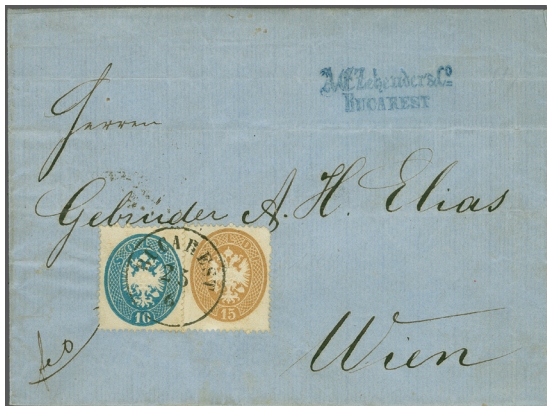 A. E. Zehender & Co
BUCAREST
Herren
Gebrüder A. H. Elias
BUKAREST
25
10
15
Wien